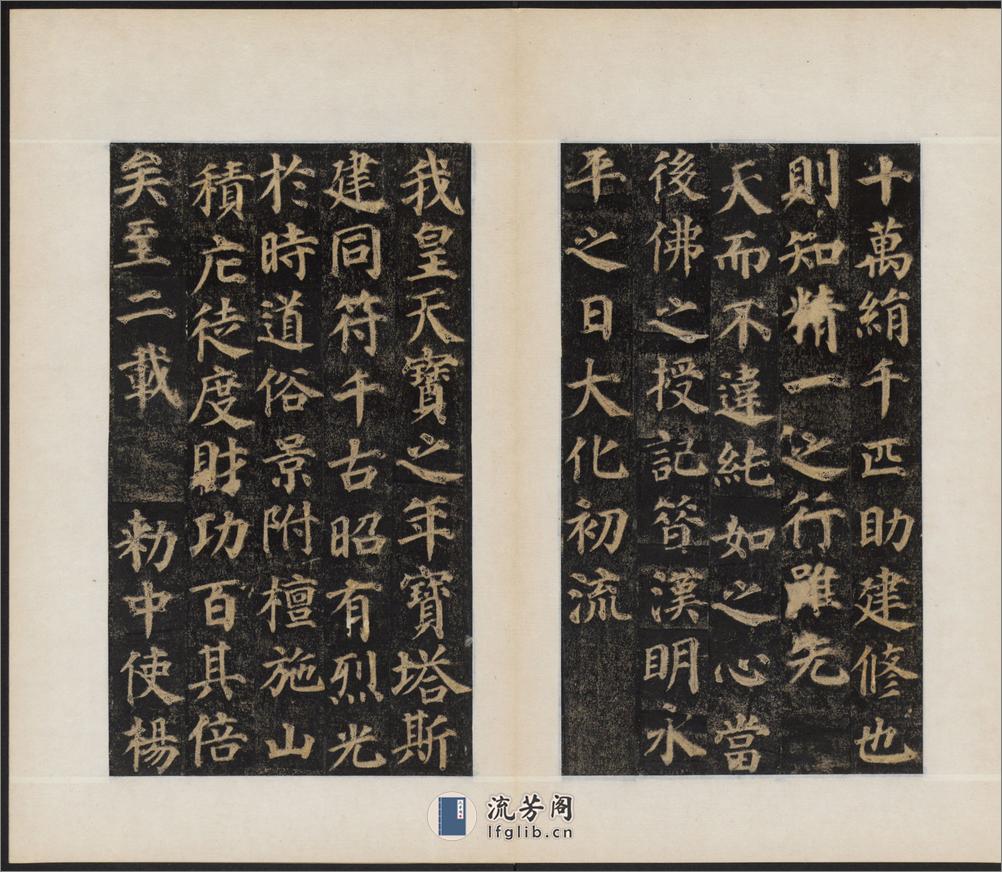 十萬絹千匹助建修也
則知精一之行雖先
天而不違純如之心當
後佛之授記昔漢明永
平之日大化初流
我皇天寶之年寶塔斯
建同符千古昭有烈光
於時道俗景附檀施山
積庀徒度財功百其倍
矣至二載 勑中使楊
流芳阁
lfglib.cn